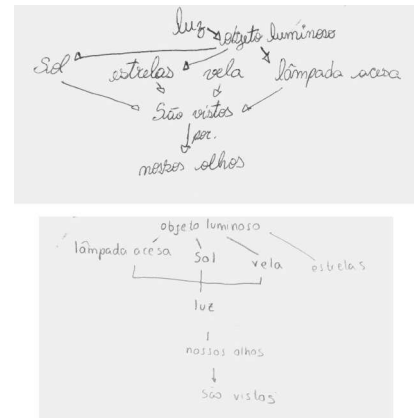 luz objeto luminoso
Sol estrelas vela lâmpada acesa
São vistos
por.
nossos olhos
objeto luminoso
lâmpada acesa Sol vela estrelas
luz
nossos olhos
são vistas